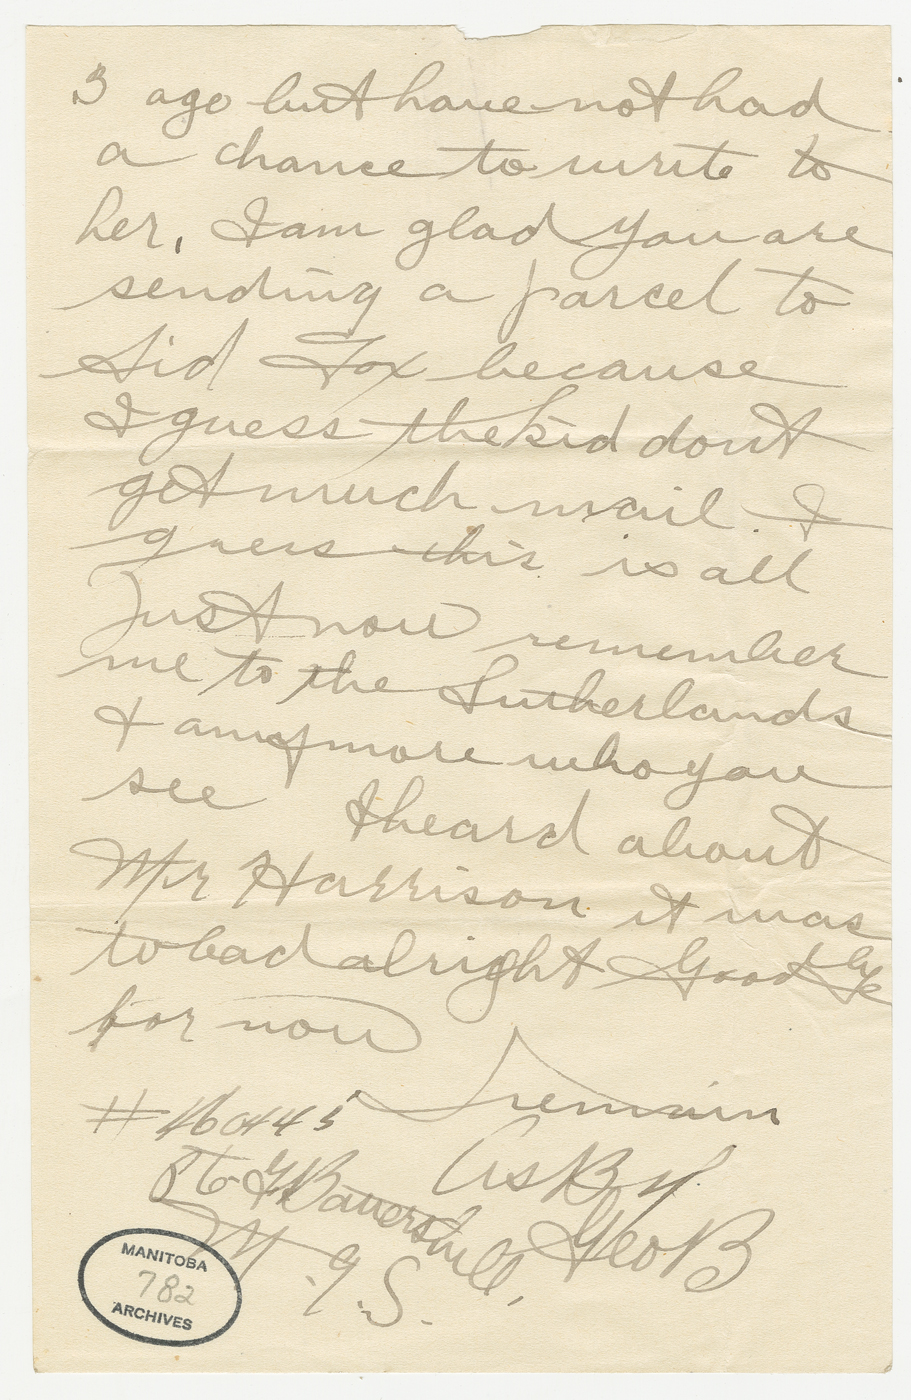 3 ago but have not had
a chance to write to
her, I am glad you are
sending a parcel to
Sid Fox because
I guess the kid dont
get much mail. I
guess this is all
Just now remember
me to the Sutherlands
& any more who you
see I heard about
Mr Harrison it was
to bad alright Good bye
for now
I remain
#460445
As
Pte G Battershill
Geo B
M.G.S.
MANITOBA
782
ARCHIVES